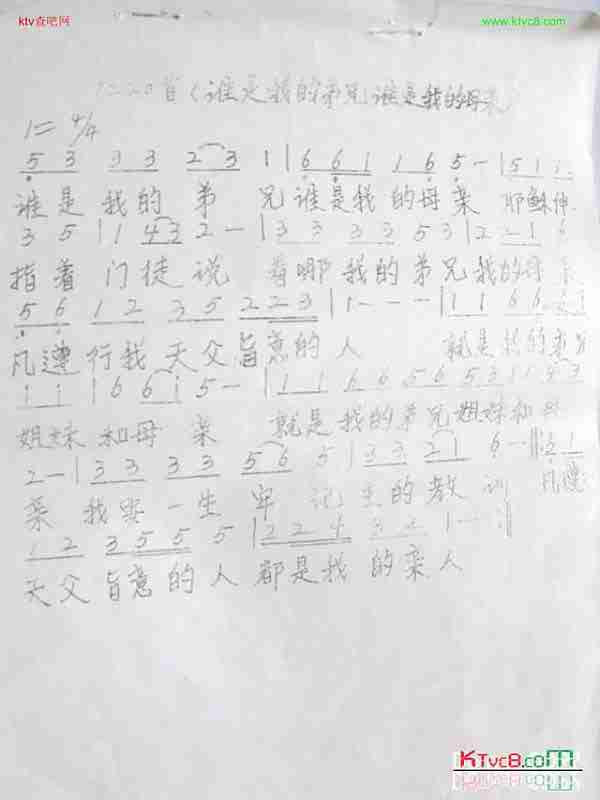 ktv查吧网
www.ktvc8.com
首(谁是我的弟兄谁是我的母亲)
1= 4/4
5 3 3 3 2 3 1 | 6 6 1 1 6 5 - | 5 1 1
谁是 我的 弟 兄 谁是我 的母亲 耶稣伸
3 5 | 1 4 3 2 - | 3 3 3 3 5 3 | 2 2 1 6
指着 门徒说 看哪 我的弟兄我的母亲
5 6 1 2 3 5 2 2 3 | 1 - - - | 1 1 6 6
凡遵 行我 天父旨意的人 就是我的
i i | 6 6 i 5 - | 1 1 6 6 5 6 5 3
姐妹 和母 亲 就是我的弟兄姐妹和母
2 - | 3 3 3 3 5 6 5 | 3 3 2 1 6
亲 我要 一生 牢 记主的教训 凡遵
1 2 3 5 5 5 5 | 2 2 4 3 2 1
天父旨意的人 都是我 的亲人
KTvc8.com